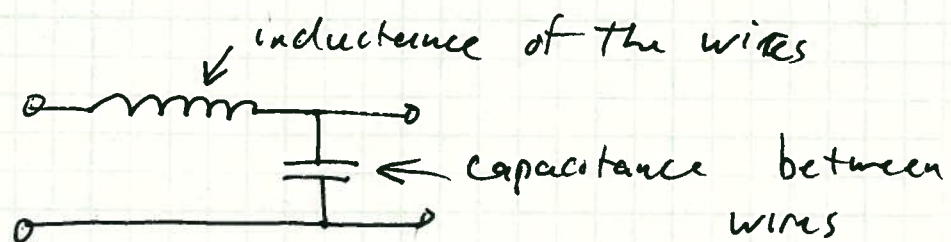 inductance of the wires
capacitance between
wires